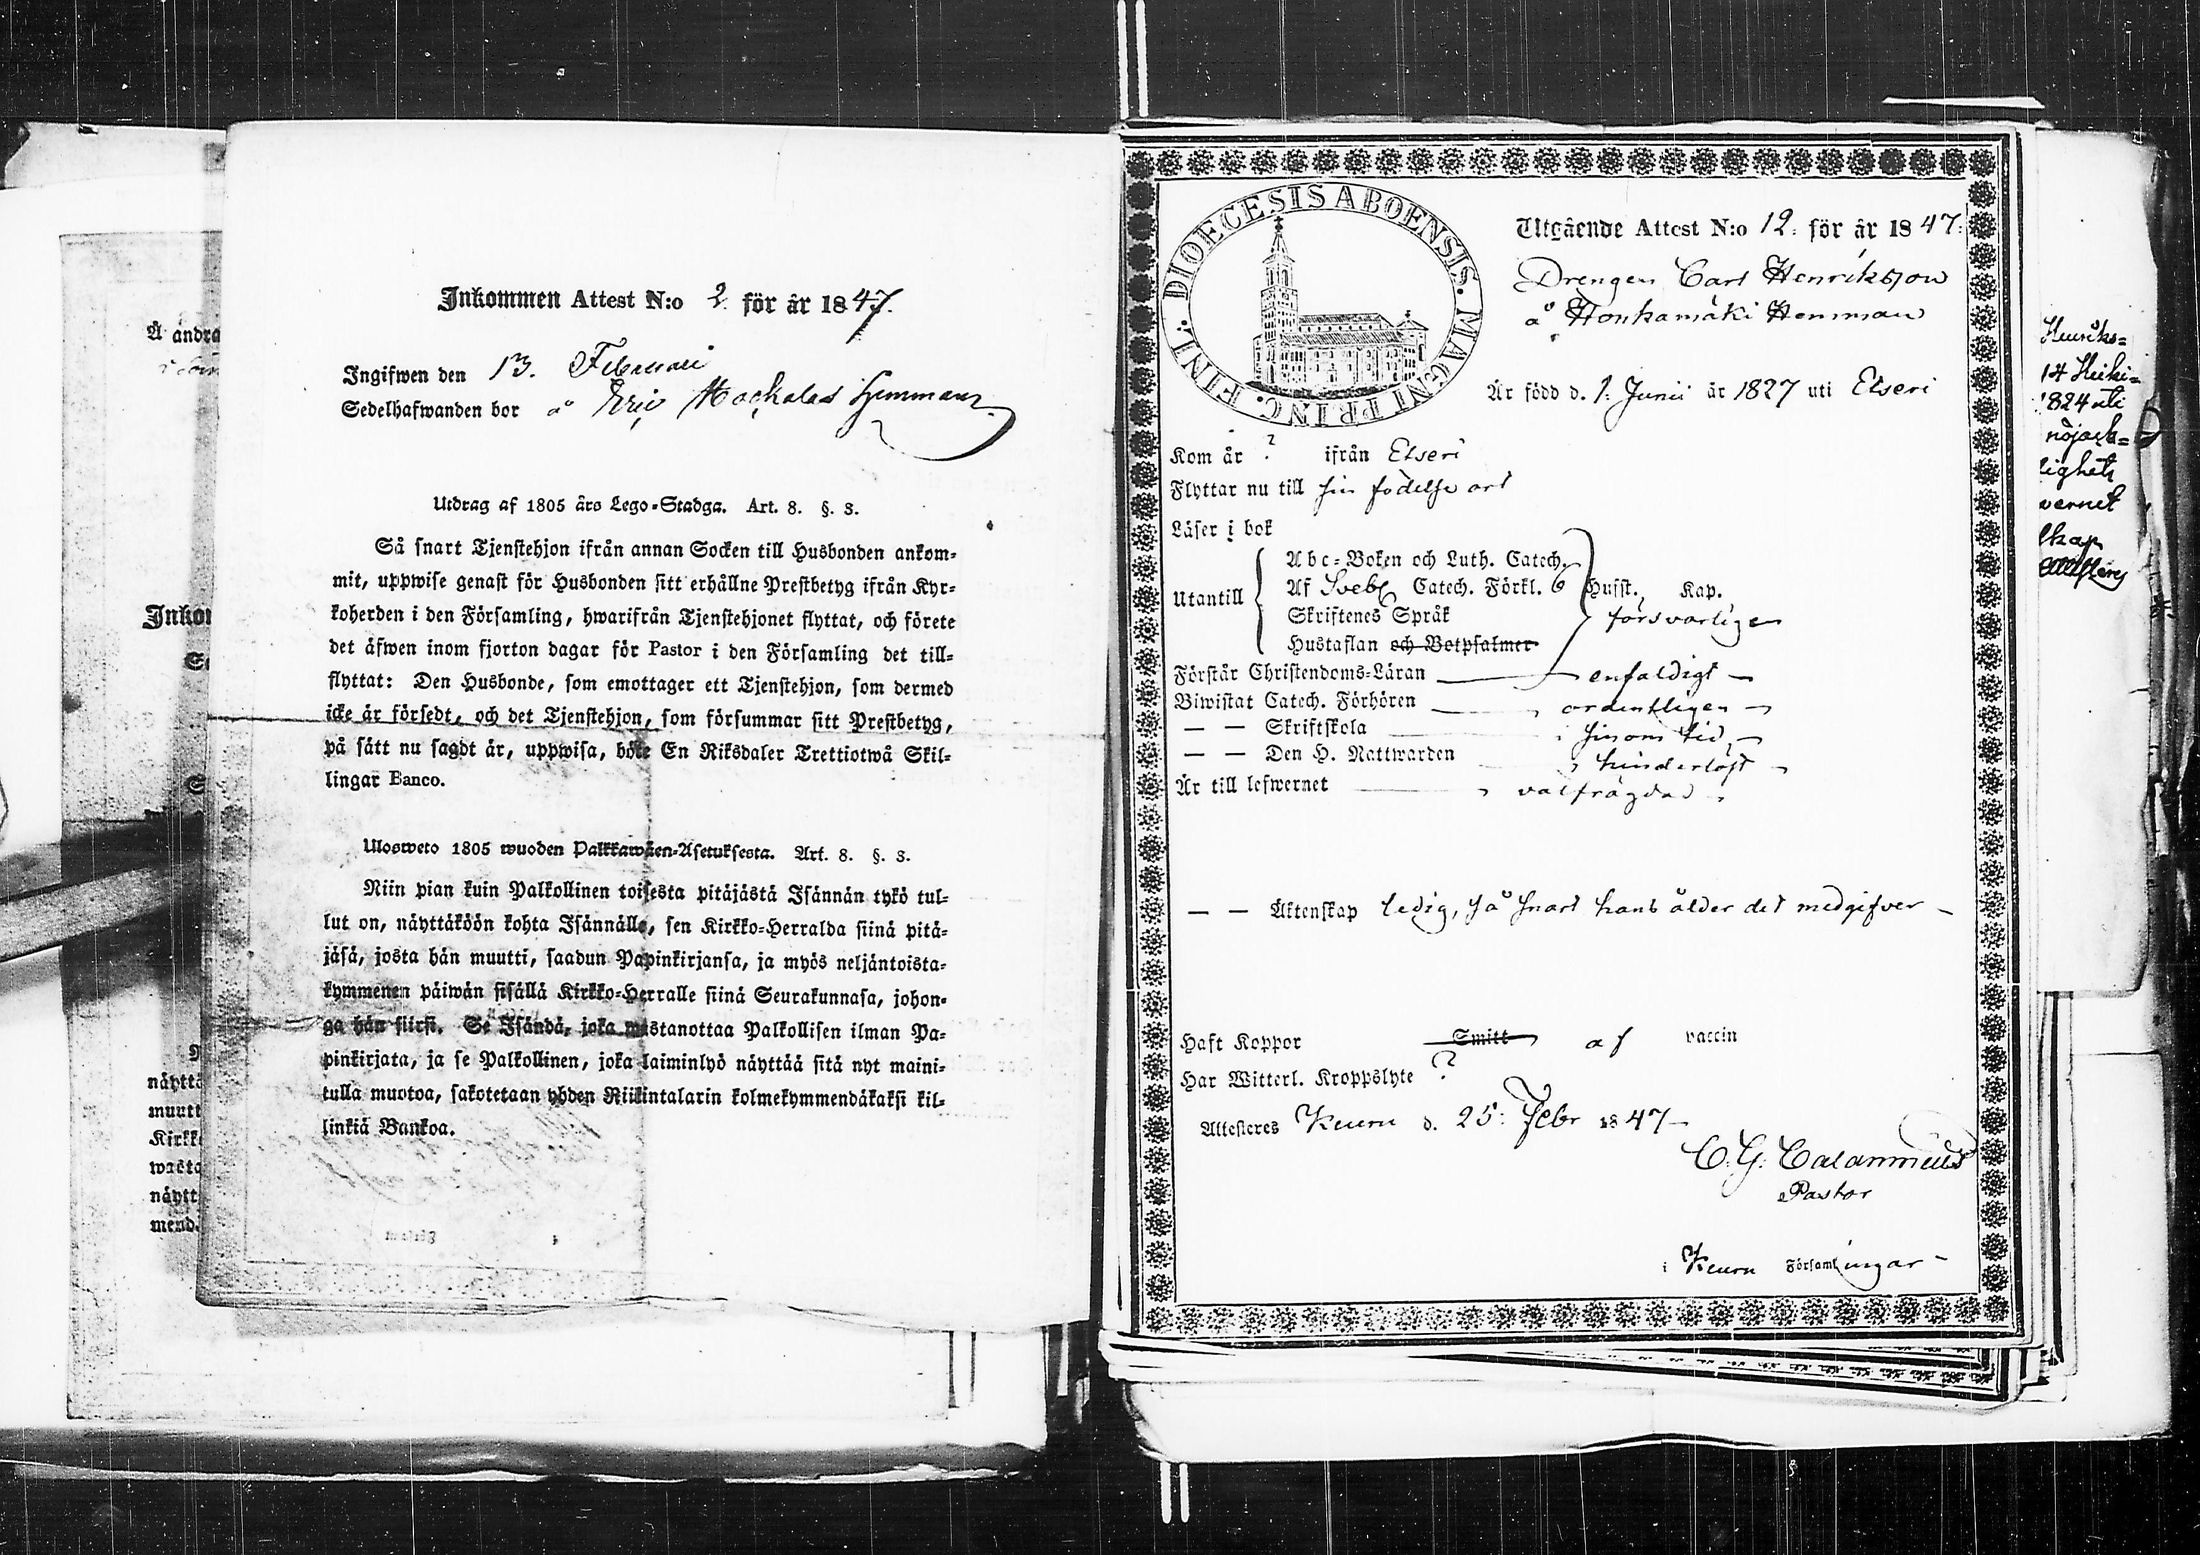 Å ändra
Inkom
näyttä
muutt
Kirkk
näytt
mend.
Inkommen Attest N:o 2. för år 1847.
Ingifwen den 13. Februari
Sedelhafwanden bor å Eric Hemman
Utdrag af 1805 års Lego-Stadga. Art. 8. §. 3.
Så snart Tjenstehjon ifrån annan Socken till Husbonden ankom-
mit, uppwise genast för Husbonden sitt erhållne Prestbetyg ifrån Kyr-
koherden i den Församling, hwarifrån Tjenstehjonet flyttat, och förete
det äfwen inom fjorton dagar för Pastor i den Församling det till-
flyttat: Den Husbonde, som emottager ett Tjenstehjon, som dermed
icke är försedt, och det Tjenstehjon, som försummar sitt Prestbetyg,
på sätt nu sagdt är, uppwisa, böte En Riksdaler Trettiotwå Skil-
lingar Banco.
Ulosweto 1805 wuoden Palkkawäen-Asetuksesta. Art. 8. §. 3.
Niin pian kuin Palkollinen toisesta pitäjästä Isännän tykö tul-
lut on, näyttäköön kohta Isännälle, sen Kirkko-Herralda siinä pitä-
jäsä, josta hän muutti, saadun Papinkirjansa, ja myös neljäntoista-
kymmenen päiwän sisällä Kirkko-Herralle siinä Seurakunnasa, johon-
ga hän siirsi. Se Isändä, joka wastanottaa Palkollisen ilman Pa-
pinkirjata, ja se Palkollinen, joka laiminlyö näyttää sitä nyt maini-
tulla muotoa, sakotetaan yhden Riikintalarin kolmekymmendäkaksi kil-
linkiä Bankoa.
DIOECESIS ABOENSIS. MAGNI PRINC. FINL.
Utgående Attest N:o 12. för år 1847.
Drengen Carl Henriksson
å Honkamäki Hemman
Är född d. 1. Junii år 1827 uti Etseri
Kom år ? ifrån Etseri
Flyttar nu till sin födelse ort
Läser i bok
Utantill
Abc-Boken och Luth. Catech.
Af Sveb. Catech. Förkl. 6 Husst. Kap.
Skriftenes Språk försvarligen
Hustaflan och Botpsalmer
Förstår Christendoms-Läran enfaldigt
Biwistat Catech. Förhören ordentligen
— — Skriftskola sinom tid
— — Den H. Nattwarden hinderlöst
Är till lefwernet välfrägdad
— — Äktenskap ledig, så snart hans ålder det medgifver
Haft Koppor Smitt af vaccin
Har Witterl. Kroppslyte ?
Attesteres Keuru d. 25. Febr 1847
C. G. Calamnius
Pastor
i Keuru Församlingar
Henriks-
14 Heiki-
1824 uti
nöjack-
lighets
vernet
skap